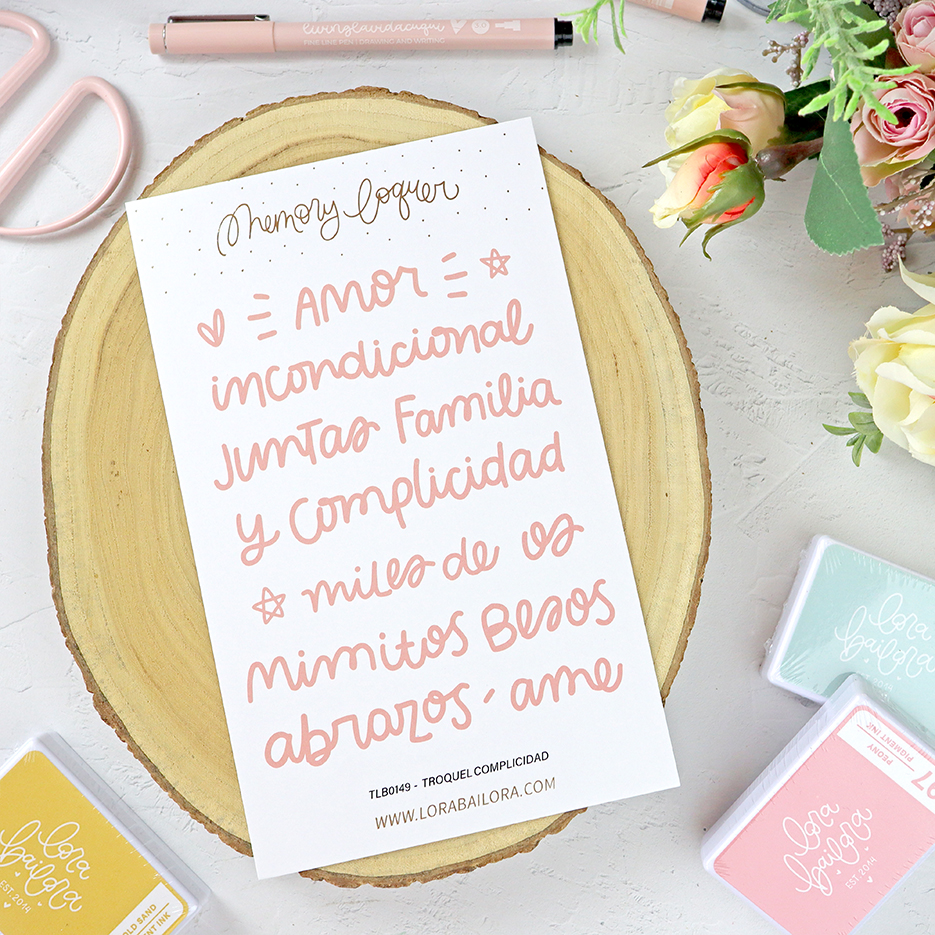 livinglavidacuqui
FINE LINE PEN | DRAWING AND WRITING
Memory loquer
Amor
incondicional
Juntas Familia
y complicidad
miles de os
mimitos Besos
abrazos - ame
TLB0149 - TROQUEL COMPLICIDAD
WWW.LORABAILORA.COM
lora
bailora
PEONY
PIGMENT INK
lora
bailora
EST. 2014
lora
bailora
EST. 2014